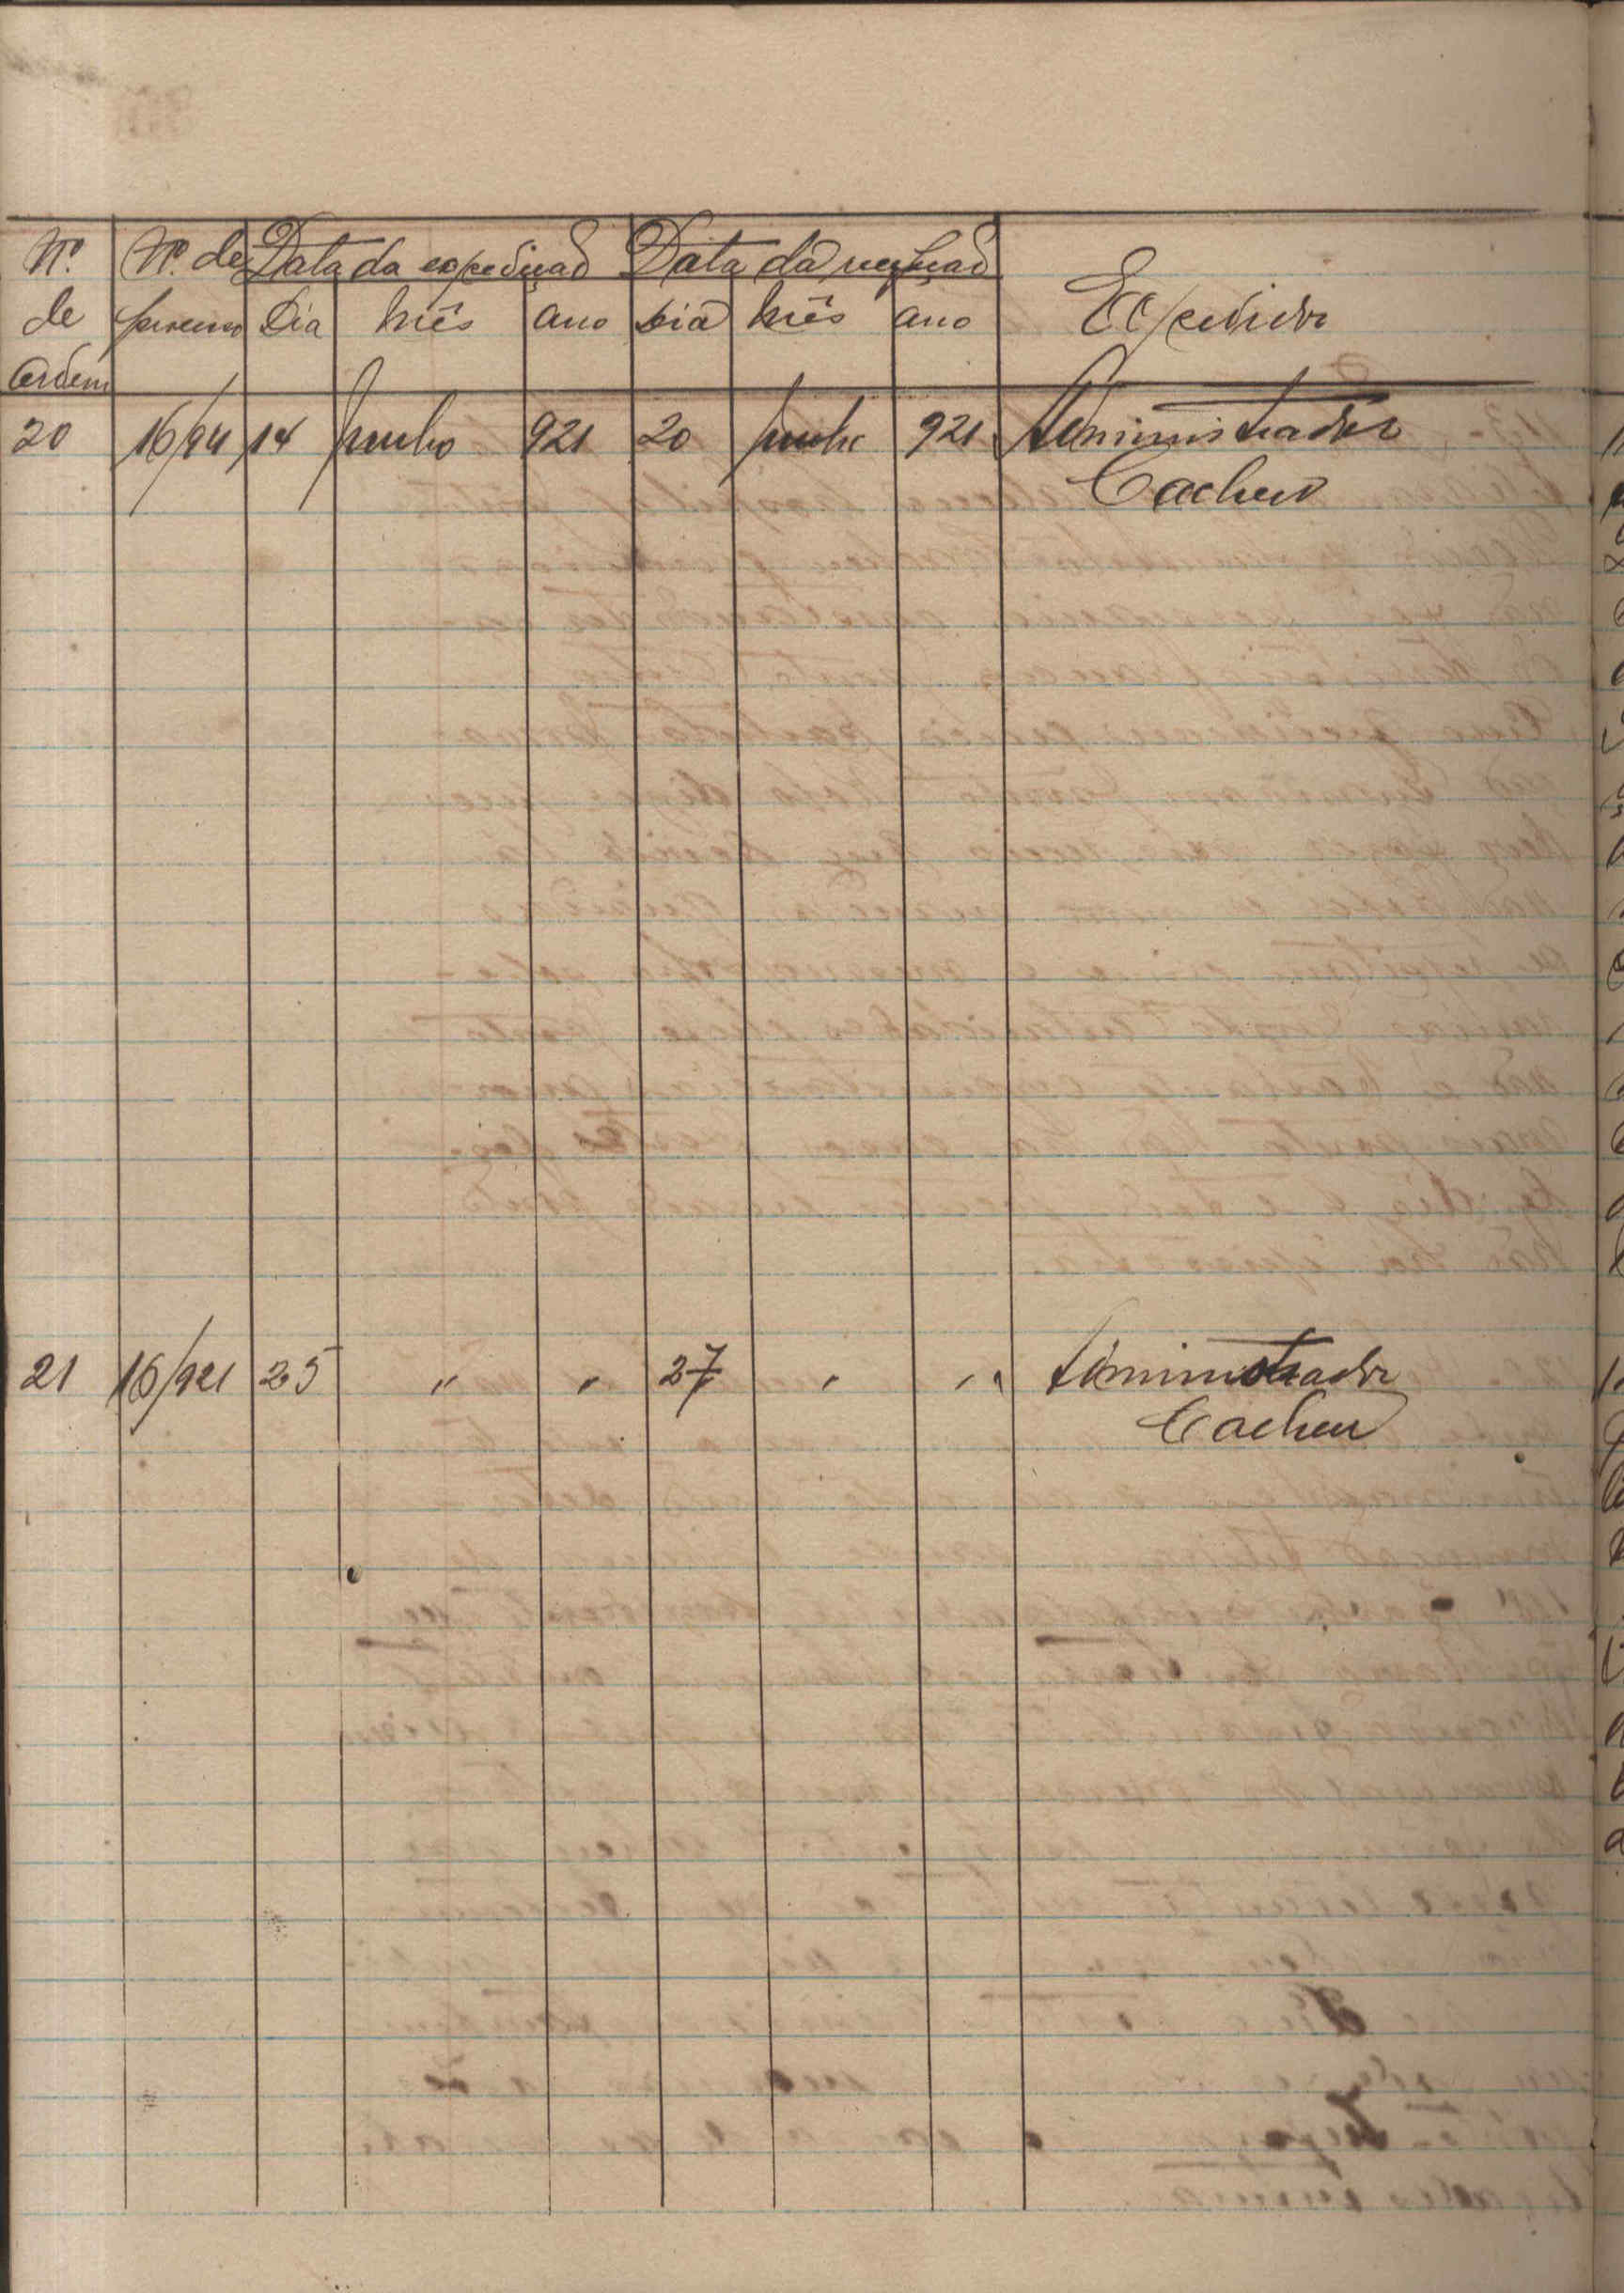 Nº. Nº. de Data da expedição Data da recepção
de processo Dia Mês ano Dia Mês ano Expedidor
Ordem
20 16/921 14 Junho 921 20 Junho 921 Administrador
Cacheu
21 16/921 25 " " 27 " " Administrador
Cacheu